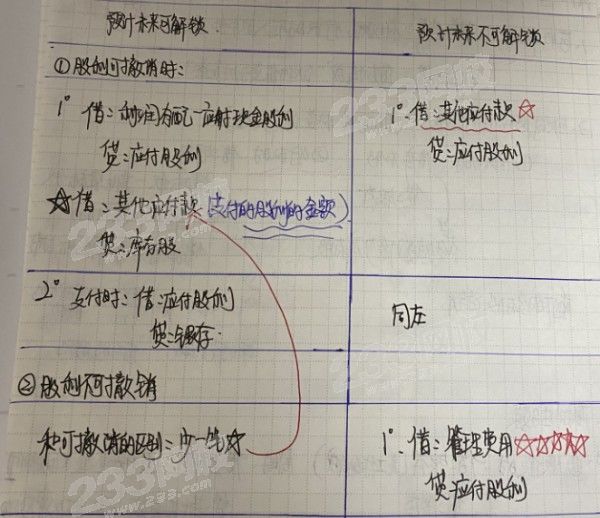 预计未来可解锁
预计未来不可解锁
①股利可撤消时:
1° 借:利润分配—应付现金股利
贷:应付股利
☆借:其他应付款(支付的股利的金额)
贷:库存股
1°.借:其他应付款☆
贷:应付股利
2° 支付时:借:应付股利
贷:银存.
同左
②股利不可撤销
和可撤消的区别:少一笔☆
1°.借:管理费用☆☆☆☆
贷:应付股利
233网校
www.233.com